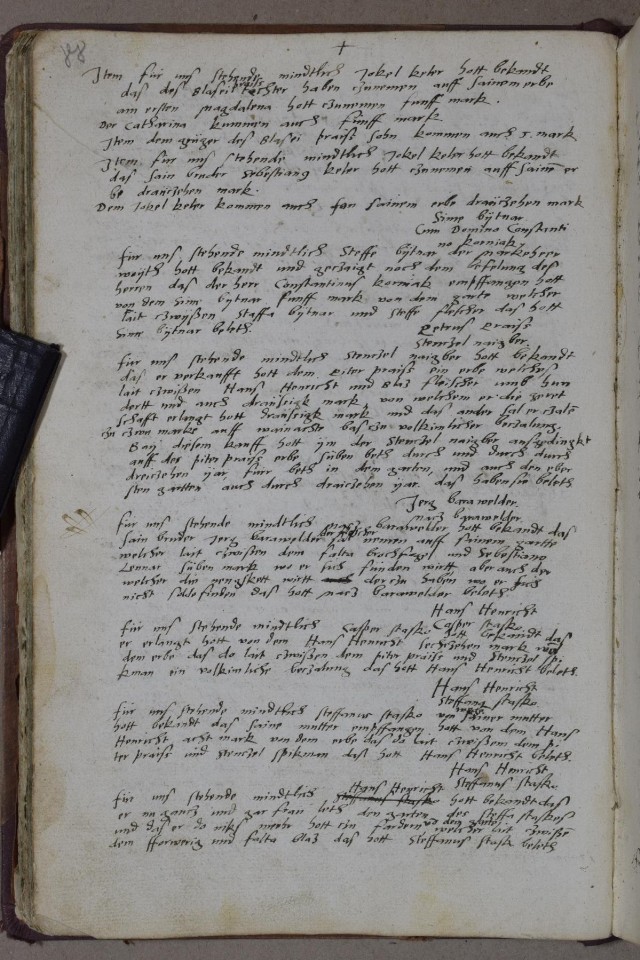 88
+
Item für uns stehende mindtlich Jokel keler hott bekandt
das des Blaseii tochter haben czunemen auff sainem erbe
am ersten Magdalena hott czunemen funff mark.
Der Catharina kummen auch funff mark
Item dem des Blasei Praiss sohn kommen auch 5. mark
Item für uns stehende mindtlich Jokel keler hott bekandt
das sain bruder Sebestiang keler hott czunemen auff saine er
be draiczehen mark.
Dem Jokel keler kommen auch fan sainem erbe draiczehen mark
Sime bytnar
Cum Domino Constanti
no korniak
für uns stehende mindtlich Steffe bytnar der
hott bekandt und geczaigt noch dem befelung des
herren das der herr Constantinus korniak empffangen hott
von dem Sime bytnar funff mark von dem garte welcher
lait czwyssen Staffa bytnar und Steffe flescher das hott
Sime bytnar beleth.
Petrus Praiss
Stenczel naigber
für uns stehende mindtlich Stenczel naigber hott bekandt
das er verkaufft hott dem Piter praiss ein erbe welches
lait czwissen Hans Henricht und Blaz fleischer umb hun
dertt und auch draissigk mark, von welchem er die geret
schafft erlangt hott draissigk mark und das ander sal er czale
zu czwu marke auff wainachte bas czu volkimlicher beczalung.
Baij diesem kauff hott ijm der Stenczel naigber ausgedingkt
auff des piter praiss erbe süben beth durch und durch durch
dreiczehen ijar, fürr beth in dem garten, und auch den eber
sten gartten auch durch draiczehen ijar das haben sie beleth
Jerg barawelder
Macz barawelder
für uns stehende mindtlich Macz barawelder hott bekandt das
sain bruder Jerg barawelder hott czu nemen auff sainem gartte
welcher lait czwissen dem falta bochfogel und Sebestiano
Lennar süben mark wo er sich finden wirtt aber auch der
welcher die gerugkett wirtt der czu haben wo er sich
nicht wde finden das hott Macz barawelder beleth
Hans Henricht
Casper stasko
für uns stehende mindtlich Casper stasko hott bekandt das
er erlangt hott von dem Hans Henricht sechczehen mark von
dem erbe das do lait czwissen dem piter praiss und Stenczel spi
kman ein volkimliche beczalung das hott Hans Henricht beleth.
Hans Henricht
Steffang stasko
für uns stehende mindtlich Steffanus stasko von sainer mutter
hott bekandt das saine mutter empffangen hott von dem Hans
Henricht acht mark von dem erbe das do lait czwissem dem pi
ter praiss und Stenczel spikman das hott Hans Henricht beleth.
Hans Henricht
Steffanus stasko
für uns stehende mindtlich Hans Henricht hott bekandt das
er in gancz und gar frau leth den garten des Steffa staskes
und das er do niks mehr hott czu fardern welcher lait czwisse
dem und falta blaz das hott Steffanus stask beleth